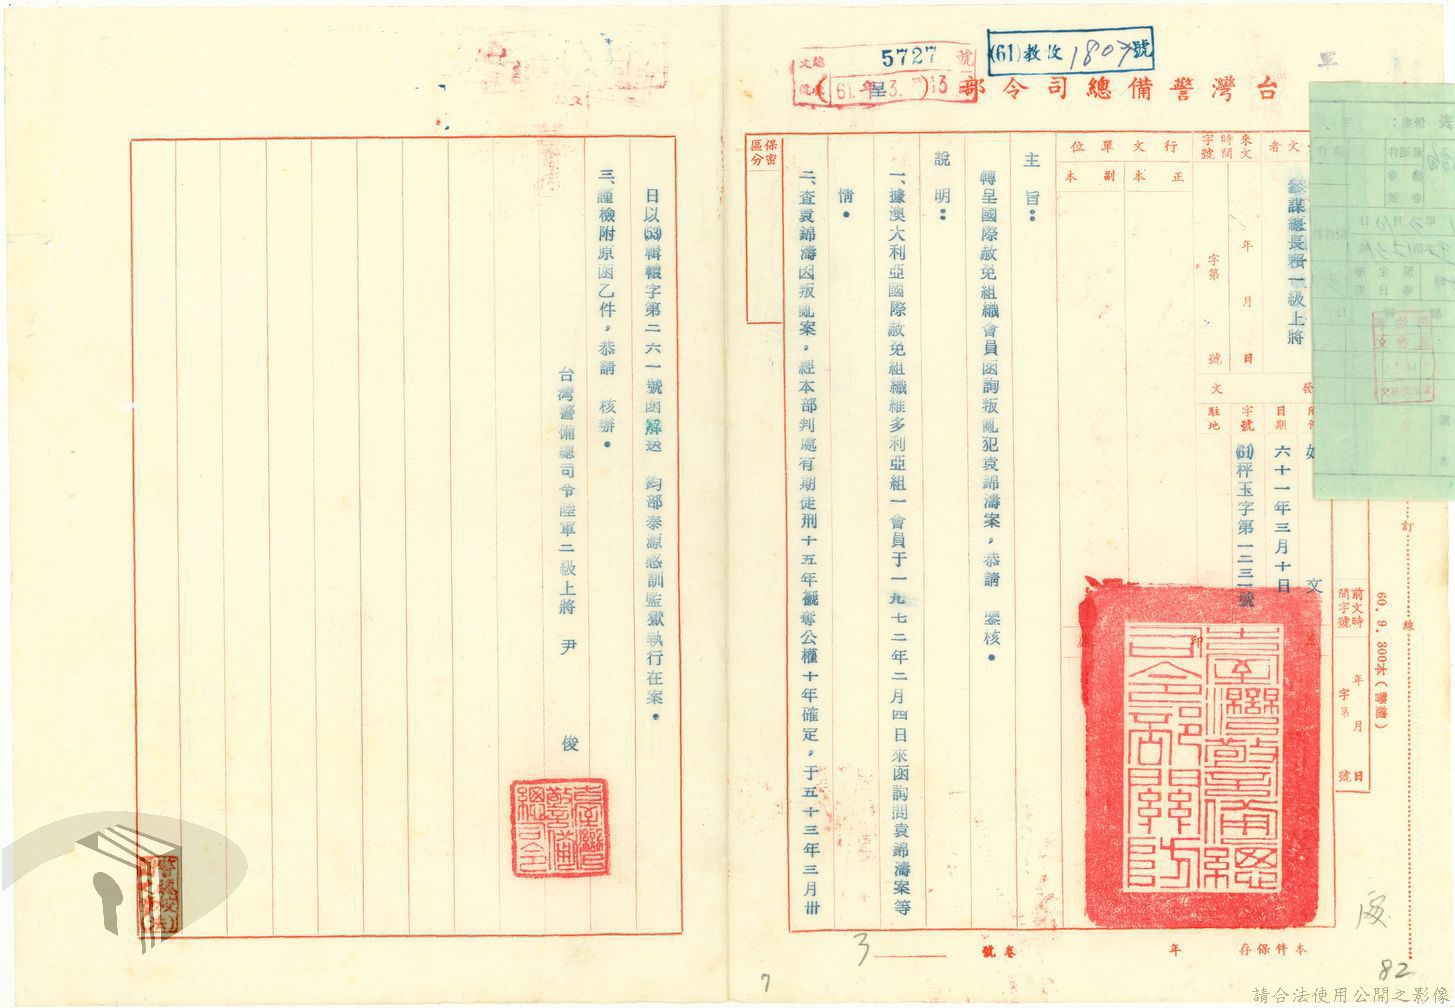 5727 號
(61)教收1807號
總
收文
61.年3.13
台灣警備總司令部(呈)
軍
受文者
參謀總長賴一級上將
來文
時間
字號
年 月 日
字第 號
行文單位
正本
副本
發文
附件
日期
字號
駐地
如文
六十一年三月十日
(61)秤玉字第一二三一號
保密
區分
主旨:
轉呈國際赦免組織會員函詢叛亂犯袁錦濤案,恭請 鑒核。
說明:
一、據澳大利亞國際赦免組織維多利亞組一會員于一九七二年二月四日來函詢問袁錦濤案等
情。
二、查袁錦濤因叛亂案,經本部判處有期徒刑十五年褫奪公權十年確定,于五十三年三月卅
日以(53)輯轅字第二六一號函解送 鈞部泰源感訓監獄執行在案。
三、謹檢附原函乙件,恭請 核辦。
台灣警備總司令陸軍二級上將 尹 俊
臺灣警備總司令部關防
臺灣警備總司令
印
前文時
間字號
年 月 日
字第 號
60.9.800本(聯灣)
訂
線
本件保存 年
卷號
3
7
82
請合法使用公開之影像